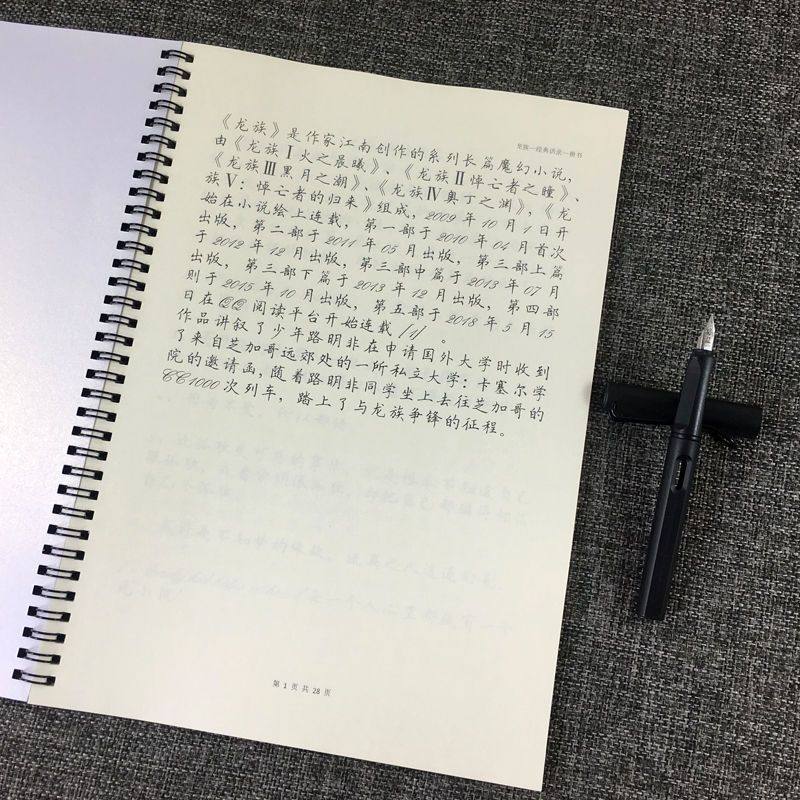 龙族—经典语录—楷书
《龙族》是作家江南创作的系列长篇魔幻小说,
由《龙族Ⅰ火之晨曦》、《龙族Ⅱ悼亡者之瞳》、
《龙族Ⅲ黑月之潮》、《龙族Ⅳ奥丁之渊》,《龙
族Ⅴ:悼亡者的归来》组成,2009年10月1日开
始在小说绘上连载,第一部于2010年04月首次
出版,第二部于2011年05月出版,第三部上篇
于2012年12月出版,第三部中篇于2013年07月
出版,第三部下篇于2013年12月出版,第四部
则于2015年10月出版,第五部于2018年5月15
日在QQ阅读平台开始连载[1]。
作品讲叙了少年路明非在申请国外大学时收到
了来自芝加哥远郊处的一所私立大学:卡塞尔学
院的邀请函,随着路明非同学坐上去往芝加哥的
CC1000次列车,踏上了与龙族争锋的征程。
第 1 页 共 28 页